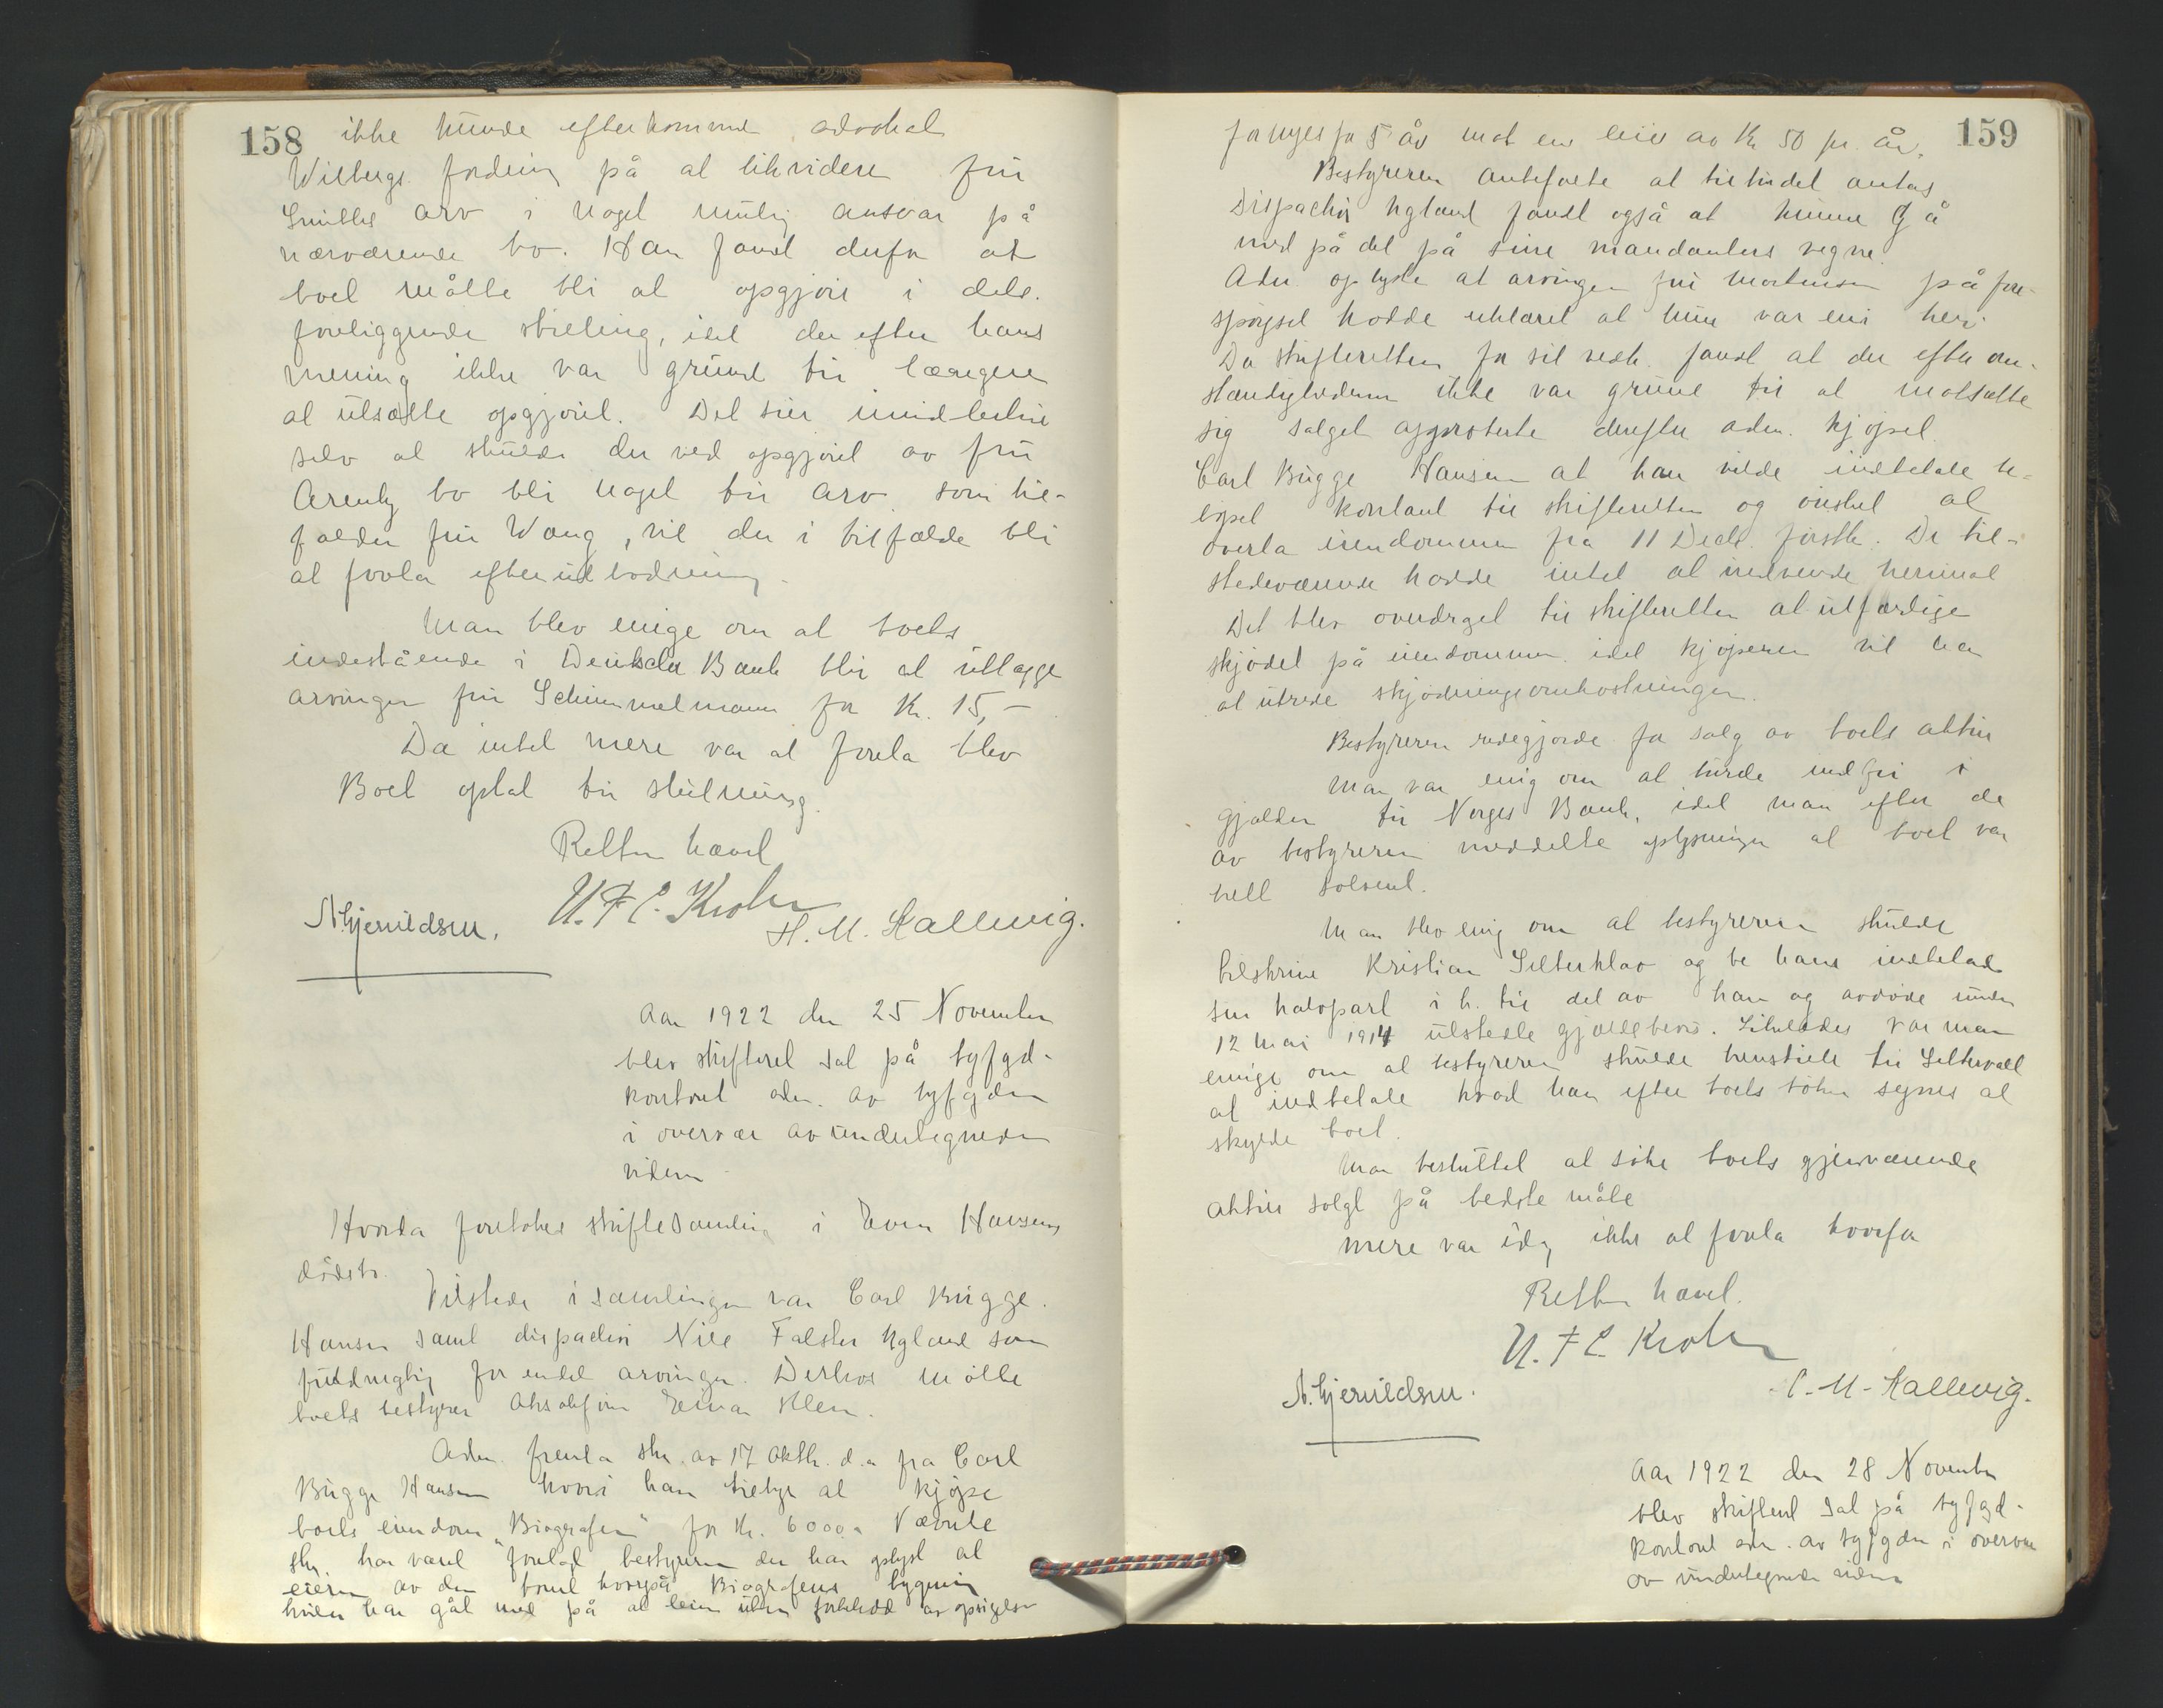 158
ikke kunde efterkomme advokat
Wilbergs fordring på at likvidere fru
Smiths arv i noget mulig ansvar på
nærværende bo. Han fandt derfor at
boet måtte bli at opgjøre i dets
foreliggende stilling, idet der efter hans
mening ikke var grund til længere
at utsætte opgjøret. Det sier imidlertid
selv at skulde der ved opgjøret av fru
Arentz bo bli noget til arv som til-
falder fru Wang, vil der i tilfælde bli
at foreta efterutlodning.
Man blev enige om at boets
indestående i Deutsche Bank blir at utlægge
arvingen fru Schimmelmann for Kr. 15,-
Da intet mere var at foreta blev
Boet optat til slutning.
Retten hævet
N. Hjeruldsen. U. F. C. Krohn
H. M. Hallevig.
Aar 1922 den 25 November
blev skifteret sat på byfgd-
kontoret adm. av byfgden
i overvær av undertegnede
vidner
Hvorda foretokes skiftesamling i Even Hansens
dødsbo.
Tilstede i samlingen var Carl Bugge
Hansen samt dispachør Nils Falster Ugland som
fuldmægtig for endel arvinger. Derhos møtte
boets bestyrer Einar Klem.
Adm. fremla skr. av 17 Oktbr. d.a. fra Carl
Bugge Hansen hvori han tilbyr at kjøpe
boets eiendom "Biografen" for Kr. 6000,- Nævnte
skr. har været forelagt bestyreren der har oplyst at
eieren av den tomt hvorpå Biografens bygning
hviler har gåt med på at leien uten forbehold av opsigelse
159
fornyes for 5 år mot en leie av Kr 50 pr. år.
Bestyreren anbefalte at tilbudet antas
Dispachør Ugland fandt også at kunne gå
med på det på sine mandanters vegne.
Adm. oplyste at arvingen fru Mortensen på fore-
spørgsel hadde erklæret at hun var enig heri.
Da skifteretten for sit vedk. fandt at der efter om-
stændighederne ikke var grund til at motsætte
sig salget approberte derefter adm. kjøpet.
Carl Bugge Hansen at han vilde indbetale be-
løpet kontant til skifteretten og ønsket at
overta eiendommen fra 11 Decbr. førstk. De til-
stedeværende hadde intet at indvende herimot
Det blev overdraget til skifteretten at utfærdige
skjødet på eiendommen idet kjøperen vil ha
at utrede skjødningsomkostninger.
Bestyreren redegjorde for salg av boets aktiv
Man var enig om at burde indfri
gjælden til Norges Bank, idet man efter de
av bestyreren meddelte oplysninger at boet var
helt solvent.
Man blev enig om at bestyreren skulde
tilskrive Kristian og be ham indbetale
sin halvpart i h. til det av ham og avdøde under
12 Mai 1914 utstedte gjældbevis. Likeledes var man
enige om at bestyreren skulde henstille til
at indbetale hvad han efter boets bøker synes at
skylde boet.
Man besluttet at søke boets gjenværende
aktiv solgt på bedste måte
Mere var idag ikke at foreta hvorfor
Retten hævet.
U. F. C. Krohn
N. Hjeruldsen. C. M. Hallevig.
Aar 1922 den 28 November
blev skifteret sat på byfgd-
kontoret adm. av byfgden i overvær
av undertegnede vidner